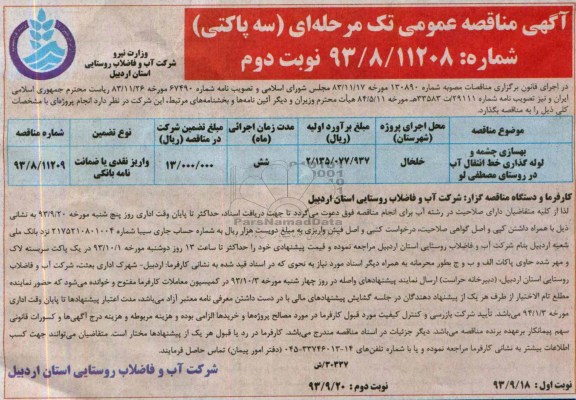 آگهی مناقصه عمومی تک مرحله‌ای (سه پاکتی)
شماره: ۹۳/۸/۱۱۲۰۸ نوبت دوم
وزارت نیرو
شرکت آب و فاضلاب روستایی
استان اردبیل
در اجرای قانون برگزاری مناقصات مصوبه شماره ۱۲۰۸۹۰ مورخه ۸۳/۱۱/۱۷ مجلس شورای اسلامی و تصویب نامه شماره ۶۷۴۹۰ مورخه ۸۳/۱۱/۲۶ ریاست محترم جمهوری اسلامی
ایران و نیز تصویب نامه شماره ۲۹۱۱۱/ت ۳۳۵۸۳هـ مورخه ۸۴/۵/۱۱ هیأت محترم وزیران و دیگر آئین نامه‌ها و بخشنامه‌های مرتبط، این شرکت در نظر دارد انجام پروژه‌ای با مشخصات
کلی ذیل را به مناقصه بگذارد.
موضوع مناقصه | محل اجرای پروژه (شهرستان) | مبلغ برآورد اولیه (ریال) | مدت زمان اجرائی (ماه) | مبلغ تضمین شرکت در مناقصه (ریال) | نوع تضمین | شماره مناقصه
بهسازی چشمه و لوله گذاری خط انتقال آب در روستای مصطفی لو | خلخال | ۲/۱۳۵/۰۷۷/۹۳۷ | شش | ۱۳/۰۰۰/۰۰۰ | واریز نقدی یا ضمانت نامه بانکی | ۹۳/۸/۱۱۲۰۹
کارفرما و دستگاه مناقصه گزار: شرکت آب و فاضلاب روستایی استان اردبیل
لذا از کلیه متقاضیان دارای صلاحیت در رشته آب برای انجام مناقصه فوق دعوت می‌گردد تا جهت دریافت اسناد، حداکثر تا پایان وقت اداری روز پنج شنبه مورخه ۹۳/۹/۲۰ به نشانی
ذیل با همراه داشتن کپی و اصل گواهی صلاحیت، درخواست کتبی و اصل فیش واریزی به مبلغ دویست هزار ریال به شماره حساب جاری سیبا شماره ۲۱۷۵۲۱۰۸۰۱۰۰۴ نزد بانک ملی
شعبه اردبیل بنام شرکت آب و فاضلاب روستایی استان اردبیل مراجعه نموده و قیمت پیشنهادی خود را حداکثر تا ساعت ۱۳ روز دوشنبه مورخه ۹۳/۱۰/۱ در یک پاکت سربسته لاک
و مهر شده حاوی پاکات الف و ب و ج بطور محرمانه به همراه دیگر اسناد مورد نیاز به نحوی که در اسناد قید شده به نشانی کارفرما: اردبیل- شهرک اداری بعثت، شرکت آب و فاضلاب
روستایی استان اردبیل، (دبیرخانه حراست) ارسال نمایند پیشنهادهای واصله در روز چهار شنبه مورخه ۹۳/۱۰/۳ در کمیسیون معاملات کارفرما مفتوح و خوانده می‌شود که حضور نماینده
مطلع تام الاختیار از طرف هر یک از پیشنهاد دهندگان در جلسه گشایش پیشنهادهای مالی با در دست داشتن معرفی نامه معتبر آزاد می‌باشد، مدت اعتبار پیشنهادها تا پایان وقت اداری
مورخه ۹۴/۱/۳ می‌باشد. تأیید شرکت بازرسی و کنترل کیفیت مورد قبول کارفرما در مورد مصالح پروژه‌ها و خریدها الزامی بوده و هزینه مربوطه و هزینه درج آگهی‌ها و کسورات قانونی
سهم پیمانکار برعهده برنده مناقصه می‌باشد. دیگر جزئیات در اسناد مناقصه مندرج می‌باشد. کارفرما در رد یا قبول هر یک از پیشنهادها مختار است. متقاضیان می‌توانند جهت کسب
اطلاعات بیشتر به نشانی کارفرما مراجعه نموده و یا با شماره تلفن‌های ۱۴-۳۳۷۴۶۰۱۳-۰۴۵ (دفتر امور پیمان) تماس حاصل فرمایند.
۳۰۳۳۷/ش
نوبت اول: ۹۳/۹/۱۸
نوبت دوم: ۹۳/۹/۲۰
شرکت آب و فاضلاب روستایی استان اردبیل
ParsNamadData